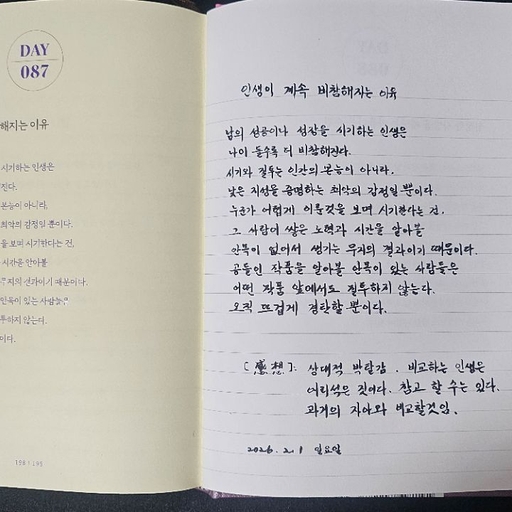 DAY
087
해지는 이유
시기하는 인생은
진다.
본능이 아니라,
최악의 감정일 뿐이다.
을 보며 시기한다는 건,
시간을 알아볼
무지의 결과이기 때문이다.
안목이 있는 사람들은
투하지 않는다.
이다.
198 | 199
인생이 계속 비참해지는 이유
남의 성공이나 성장을 시기하는 인생은
나이 들수록 더 비참해진다.
시기와 질투는 인간의 본능이 아니라,
낮은 지성을 증명하는 최악의 감정일 뿐이다.
누군가 어렵게 이룬것을 보며 시기한다는 건,
그 사람이 쌓은 노력과 시간을 알아볼
안목이 없어서 생기는 무지의 결과이기 때문이다.
공들인 작품을 알아볼 안목이 있는 사람들은
어떤 작품 앞에서도 질투하지 않는다.
오직 뜨겁게 경탄할 뿐이다.
[感想]: 상대적 박탈감. 비교하는 인생은
어리석은 짓이다. 참고 할 수는 있다.
과거의 자아와 비교할것임.
2026. 2. 1 일요일